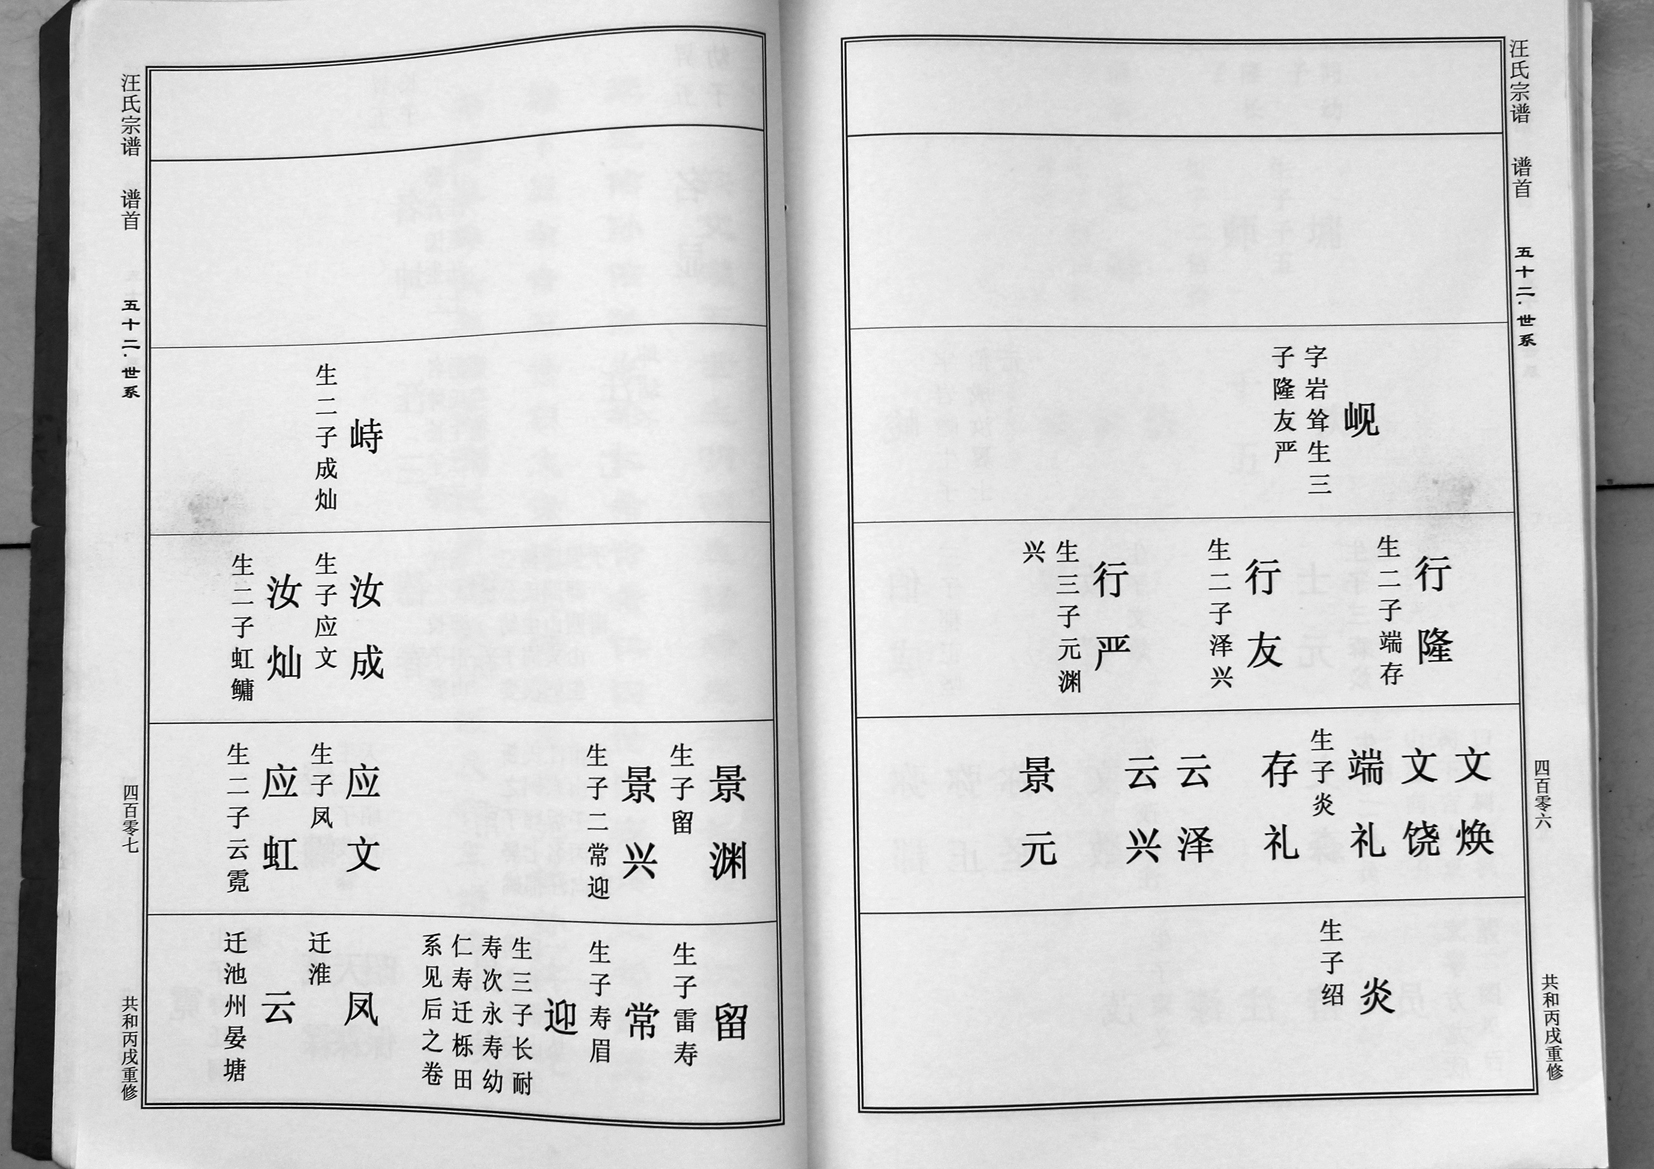 汪氏宗谱 谱首 五十二·世系 四百零六 共和丙戌重修
岘
字岩耸生三
子隆友严
行隆
生二子端存
行友
生二子泽兴
行严
生三子元渊
兴
文焕
文饶
端礼
生子炎
存礼
云泽
云兴
景元
炎
生子绍
景渊
生子留
景兴
生子二常迎
留
生子雷寿
常
生子寿眉
迎
生三子长耐
寿次永寿幼
仁寿迁栎田
系见后之卷
峙
生二子成灿
汝成
生子应文
汝灿
生二子虹鳙
应文
生子凤
应虹
生二子云霓
凤
迁淮
云
迁池州晏塘
汪氏宗谱 谱首 五十二·世系 四百零七 共和丙戌重修